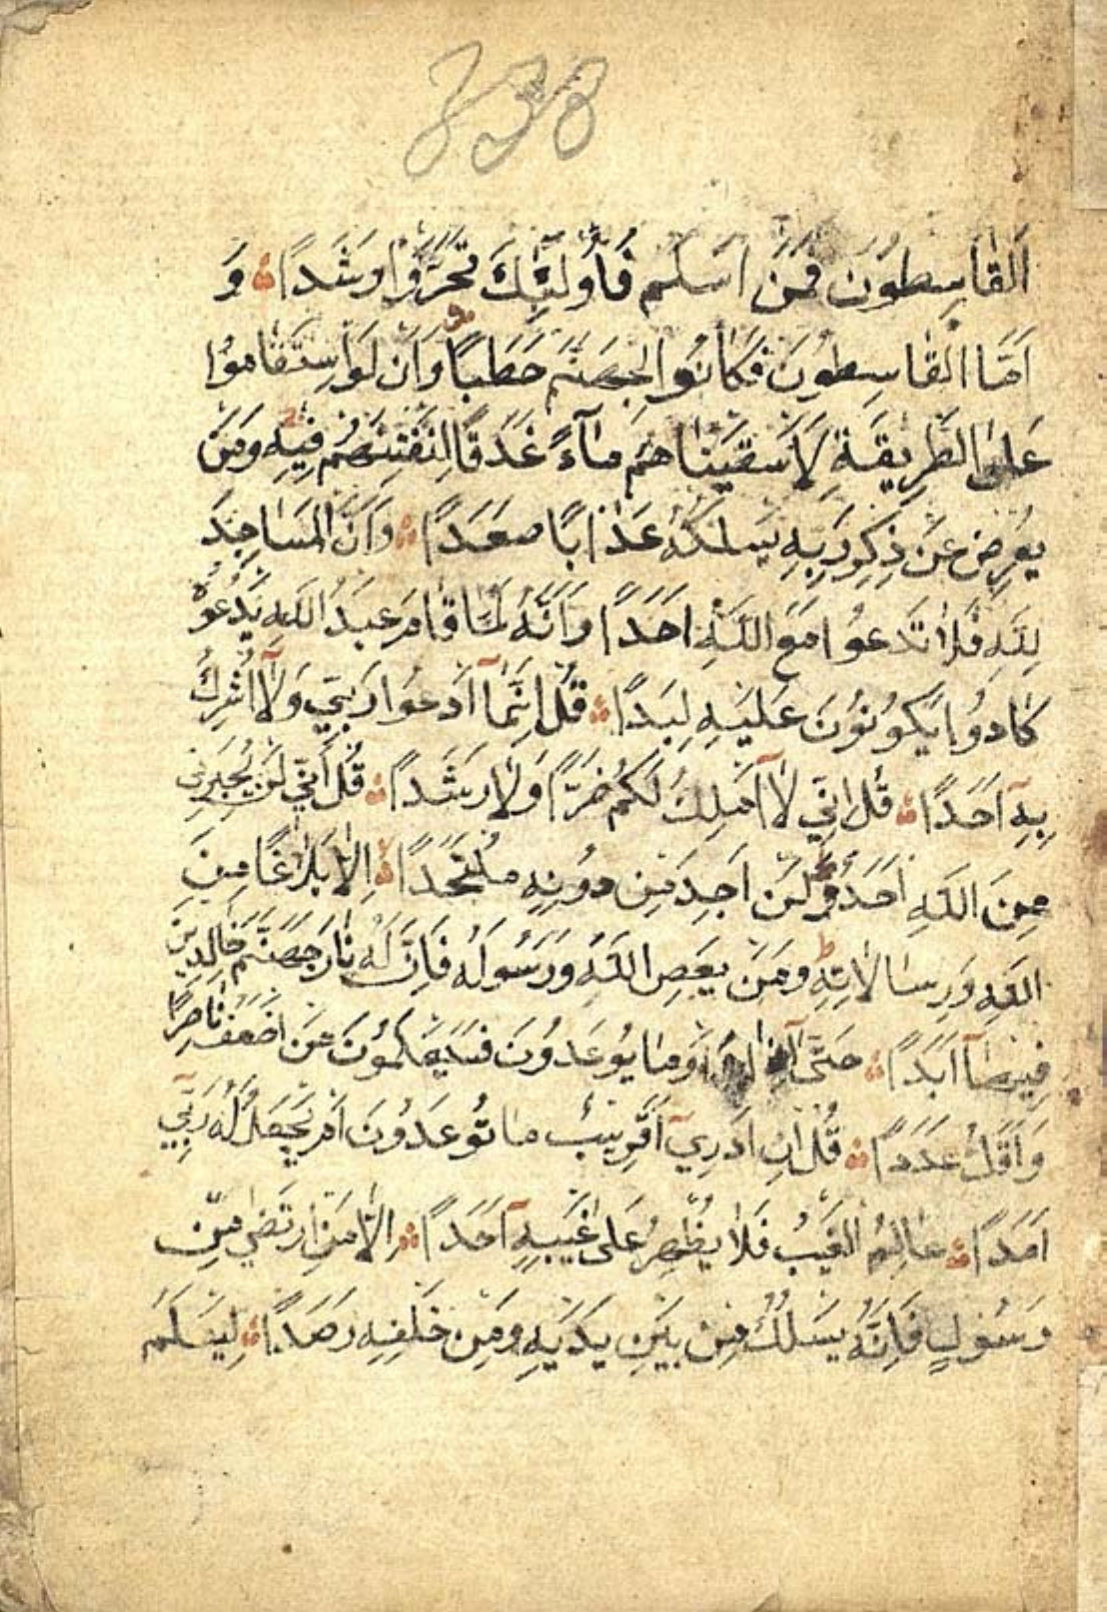 اَلْقَاسِطُونَ فَمَنْ اَسْلَمَ فَاُولٰئِكَ تَحَرَّوْا رَشَدًا وَ
اَمَّا الْقَاسِطُونَ فَكَانُوا لِجَهَنَّمَ حَطَبًا وَاَنْ لَوِاسْتَقَامُوا
عَلَى الطَّرِيقَةِ لَاَسْقَيْنَاهُمْ مَآءً غَدَقًا لِنَفْتِنَهُمْ فِيهِ وَمَنْ
يُعْرِضْ عَنْ ذِكْرِ رَبِّهِ يَسْلُكْهُ عَذَابًا صَعَدًا وَاَنَّ الْمَسَاجِدَ
لِلّٰهِ فَلَا تَدْعُوا مَعَ اللّٰهِ اَحَدًا وَاَنَّهُ لَمَّا قَامَ عَبْدُ اللّٰهِ يَدْعُوهُ
كَادُوا يَكُونُونَ عَلَيْهِ لِبَدًا قُلْ اِنَّمَآ اَدْعُوا رَبِّي وَلَآ اُشْرِكُ
بِهِٓ اَحَدًا قُلْ اِنِّي لَآ اَمْلِكُ لَكُمْ ضَرًّا وَلَا رَشَدًا قُلْ اِنِّي لَنْ يُجِيرَنِي
مِنَ اللّٰهِ اَحَدٌ وَلَنْ اَجِدَ مِنْ دُونِهِ مُلْتَحَدًا اِلَّا بَلَاغًا مِنَ
اللّٰهِ وَرِسَالَاتِهِ وَمَنْ يَعْصِ اللّٰهَ وَرَسُولَهُ فَاِنَّ لَهُ نَارَ جَهَنَّمَ خَالِدِينَ
فِيهَآ اَبَدًا حَتّٰىٓ اِذَا رَاَوْا مَا يُوعَدُونَ فَسَيَعْلَمُونَ مَنْ اَضْعَفُ نَاصِرًا
وَاَقَلُّ عَدَدًا قُلْ اِنْ اَدْرِيٓ اَقَرِيبٌ مَا تُوعَدُونَ اَمْ يَجْعَلُ لَهُ رَبِّيٓ
اَمَدًا عَالِمُ الْغَيْبِ فَلَا يُظْهِرُ عَلٰى غَيْبِهِٓ اَحَدًا اِلَّا مَنِ ارْتَضٰى مِنْ
رَسُولٍ فَاِنَّهُ يَسْلُكُ مِنْ بَيْنِ يَدَيْهِ وَمِنْ خَلْفِهِ رَصَدًا لِيَعْلَمَ